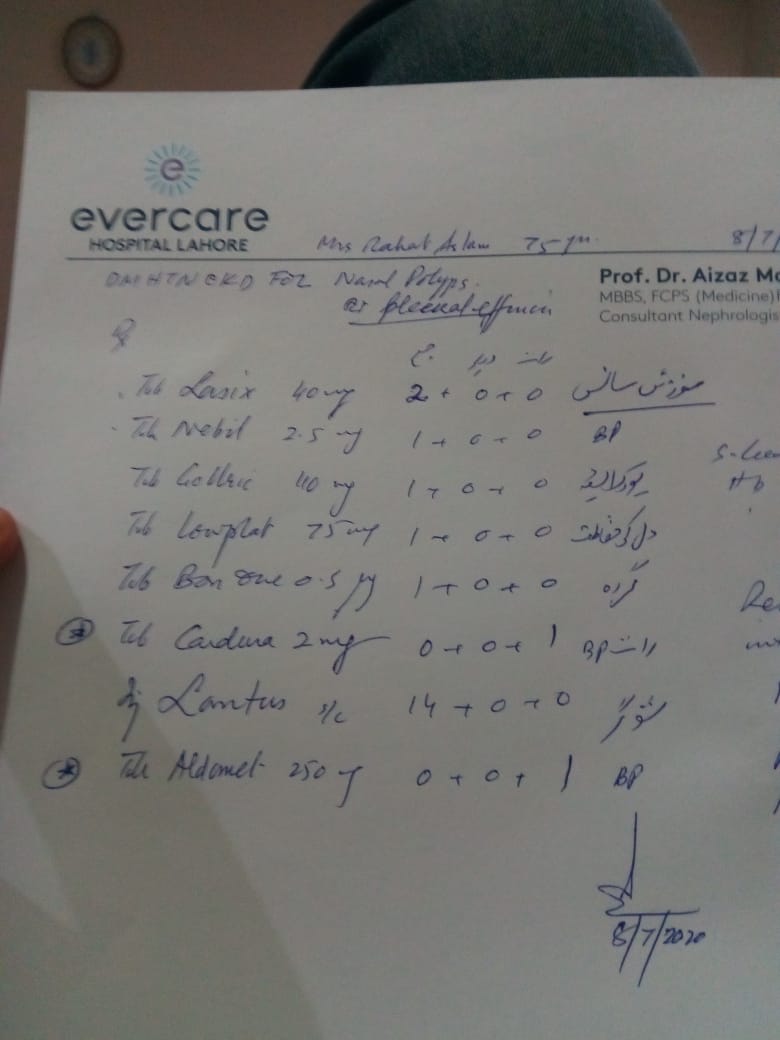 evercare
HOSPITAL LAHORE
Mrs Rahat Aslam 75 yrs. 8/7/
DM HTN CKD FOR Nasal Polyps.
Prof. Dr. Aizaz
MBBS, FCPS (Medicine)
Consultant Nephrologis
Rt pleural effusion
صبح دوپہر رات
Tab Lasix 40 mg 2 + 0 + 0 سوزش سانس
Tab Nebil 2.5 mg 1 + 0 + 0 BP
Tab 40 mg 1 + 0 + 0
Tab Lowplat 75 mg 1 + 0 + 0 دل کی حفاظت
Tab Bon One 0.5 µg 1 + 0 + 0 گردہ
Tab Cardura 2 mg 0 + 0 + 1 رات BP
Inj Lantus s/c 14 + 0 + 0 شوگر
Tab Aldomet 250 mg 0 + 0 + 1 BP
8/7/2020